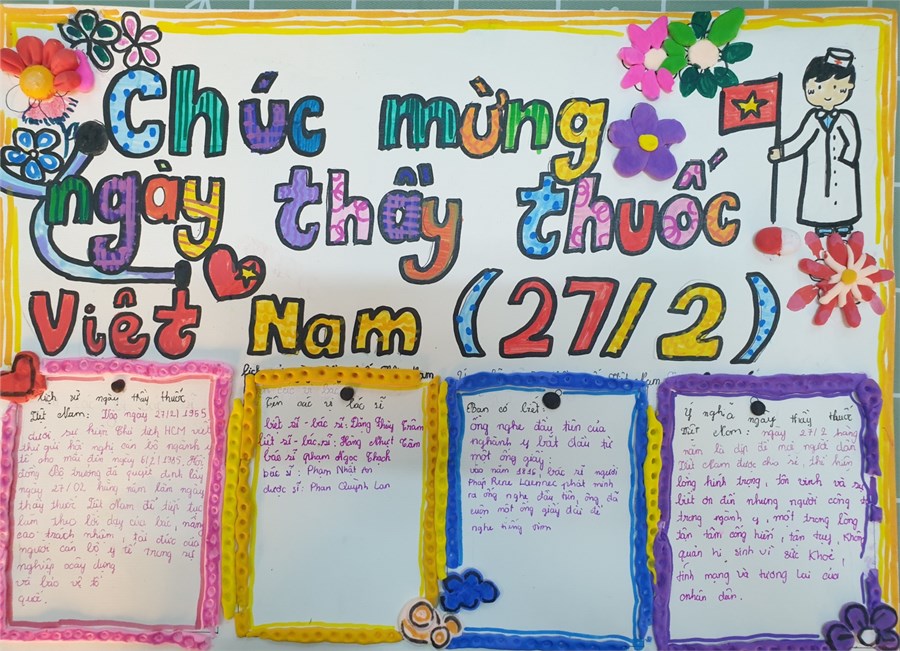 Chúc mừng
ngày thầy thuốc
Việt Nam (27/2)
lịch sử ngày thầy thuốc
Việt Nam: Vào ngày 27/2/1955
dưới sự hiện Chủ tịch HCM viết
thư gửi hội nghị cán bộ ngành y
tế cho mãi đến ngày 6/2/1985, Hội
đồng Bộ trưởng đã quyết định lấy
ngày 27/02 hằng năm làm ngày
thầy thuốc Việt Nam để tiếp tục
làm theo lời dạy của bác, nâng
cao trách nhiệm, tài đức của
người cán bộ y tế trong sự
nghiệp xây dựng
và bảo vệ tổ
quốc.
Tên các vị bác sĩ
liệt sĩ - bác sĩ: Đặng Thùy Trâm
liệt sĩ - bác sĩ: Hoàng Nhựt Tâm
bác sĩ: Phạm Ngọc Thạch
bác sĩ: Phan Nhất An
dược sĩ: Phan Quỳnh Lan
Bạn có biết:
Ống nghe đầu tiên của
nghành y bắt đầu từ
một ống giấy:
vào năm 1816 bác sĩ người
Pháp Rene Laennec phát minh
ra ống nghe đầu tiên, ông đã
cuộn một ống giấy dài để
nghe tiếng tim
Ý nghĩa ngày thầy thuốc
Việt Nam: ngày 27/2 hằng
năm là dịp để mọi người dân
Việt Nam được chia sẻ, thể hiện
lòng kính trọng, tôn vinh và sự
biết ơn đối những người công tác
trong ngành y, một trong lòng
tận tâm cống hiến, tận tụy, không
quản hi sinh vì sức khoẻ,
tính mạng và tương lai của
nhân dân.